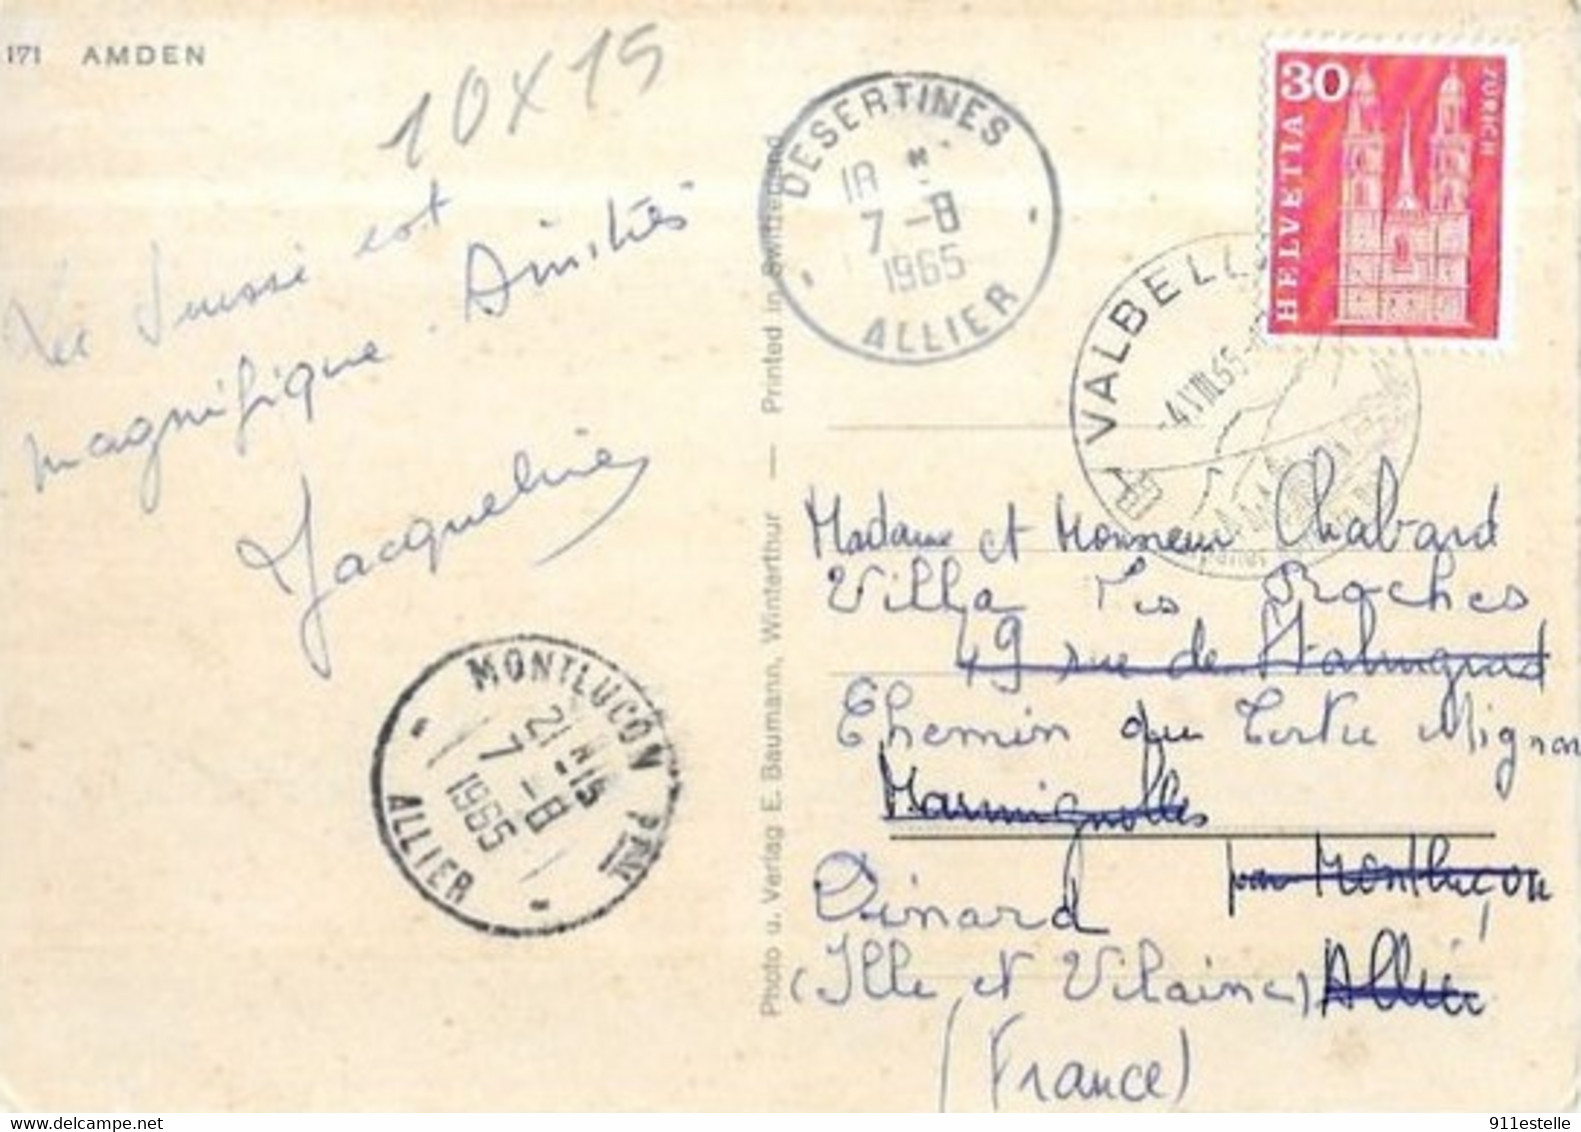 171 AMDEN
10 x 15
La Suisse est
magnifique. Amitiés
Jacqueline
DESERTINES
18
7-8
1965
ALLIER
MONTLUCON
21 H 15
7-8
1965
ALLIER
Photo u. Verlag E. Baumann, Winterthur — Printed in Switzerland
30
HELVETIA
ZÜRICH
VALBELLA
-4.VIII.65
Madame et Monsieur Chabard
Villa Les Roches
49 rue de Stalingrad
Chemin du Tertre Mignon
Marmignolles
par Montluçon
Dinard
(Ille et Vilaine) Allier
(France)
911estelle